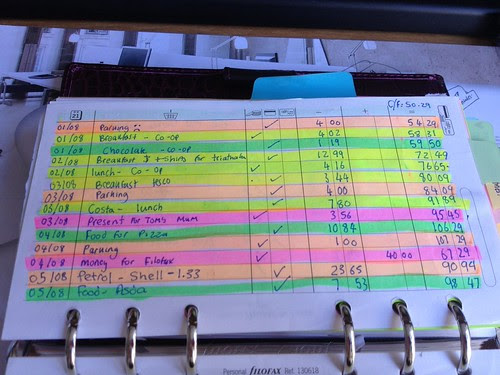 C/F: 50.29
21 - + =
01/08 Parking ✓ 4 00 54 29
01/08 Breakfast - Co-op ✓ 4 02 58 31
01/08 Chocolate - co-op ✓ 1 19 59 50
02/08 Breakfast & t-shirts for ✓ 12 99 72 49
02/08 lunch - Co-op ✓ 4 16 76 65
03/08 Breakfast ✓ 3 44 80 09
03/08 Parking ✓ 4 00 84 09
03/08 Costa - lunch ✓ 7 80 91 89
03/08 Present for Tom's Mum ✓ 3 56 95 45
04/08 Food for Pizza ✓ 10 84 106 29
04/08 Parking ✓ 1 00 107 29
04/08 money for Filofax ✓ 40 00 67 29
05/08 Petrol - Shell - 1.33 ✓ 23 65 90 94
05/08 Food - Asda ✓ 7 53 98 47
Personal filofax Ref. 130618